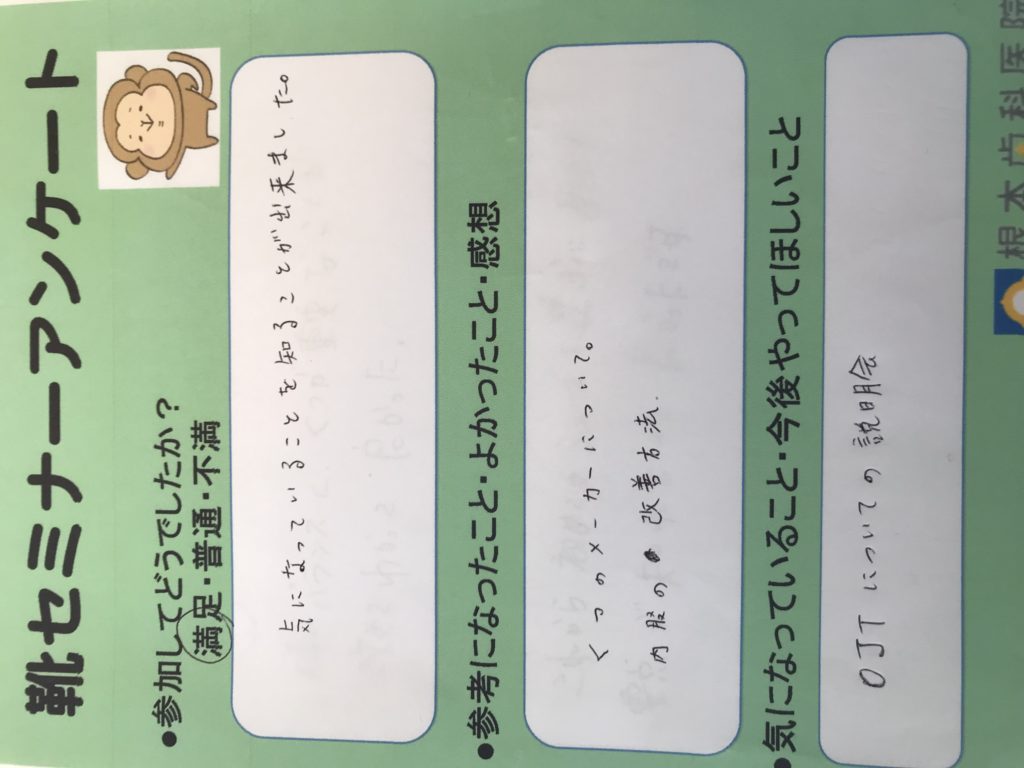 靴セミナーアンケート
●参加してどうでしたか？
満足・普通・不満
気になっていることを知ることが出来ました。
●参考になったこと・よかったこと・感想
くつのメーカーについて。
内服の改善方法.
●気になっていること・今後やってほしいこと
OJTについての説明会
根本歯科医院